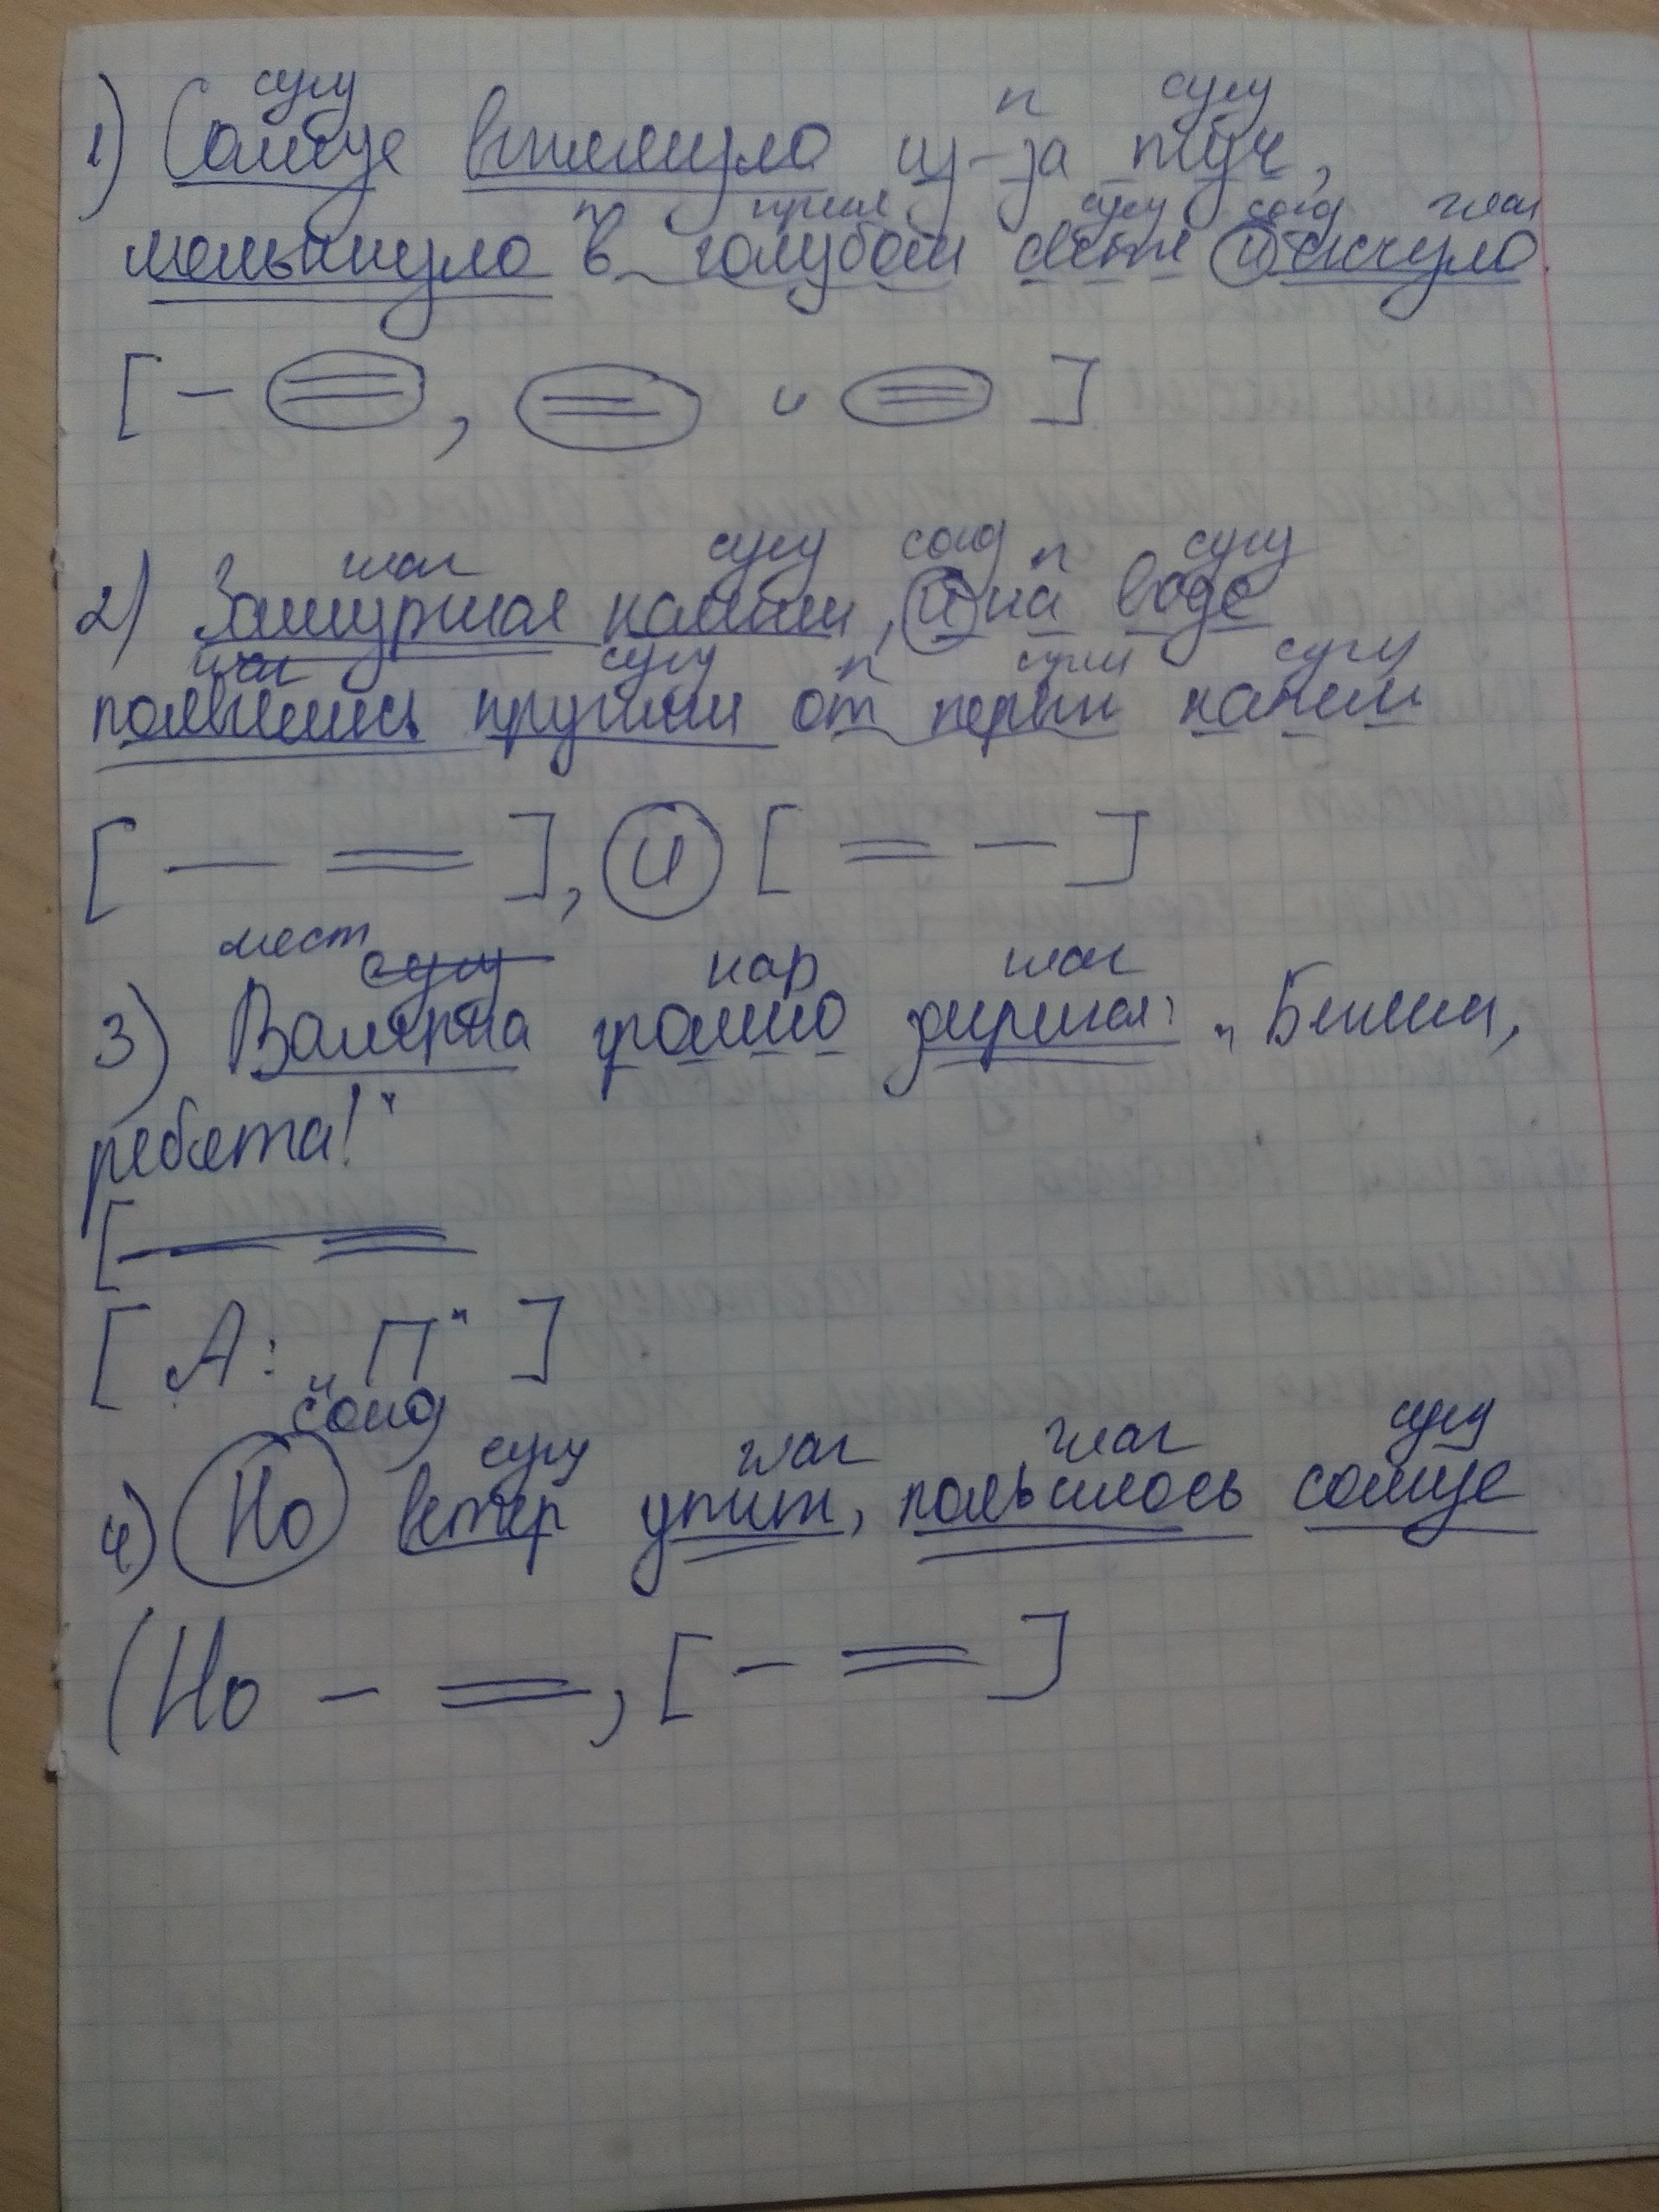 сущ п сущ
1) Солнце выглянуло из-за туч,
п прил сущ союз глаг
мелькнуло в голубом свете и
[ – =, = и = ]
глаг сущ союз п сущ
2) Зашуршал камыш, и на воде
глаг сущ п сущ
появились кружки от капель
[ – = ], и [ = – ]
мест сущ нар глаг
3) громно закричал: „
ребята!“
[ – =
[ А: „П“ ]
союз сущ глаг глаг сущ
4) Но ветер утих, появилось солнце
(Но – =, [ – = ]